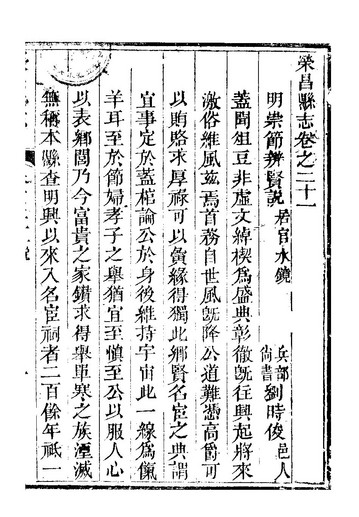 榮昌縣志卷之二十一
明崇節辨賢說 居官水鏡 兵部尚書劉時俊邑人
蓋聞俎豆非虛文綽楔爲盛典彰徹旣往興起將來
激俗維風茲焉首務自世風旣降公道難憑高爵可
以賄賂求厚祿可以夤緣得獨此鄉賢名宦之典謂
宜事定於蓋棺論公於身後維持宇宙此一線爲餼
羊耳至於節婦孝子之舉猶宜至愼至公以服人心
以表鄉閭乃今富貴之家鑽求得舉單寒之族湮滅
無稱本縣查明興以來入名宦祠者二百餘年祗一